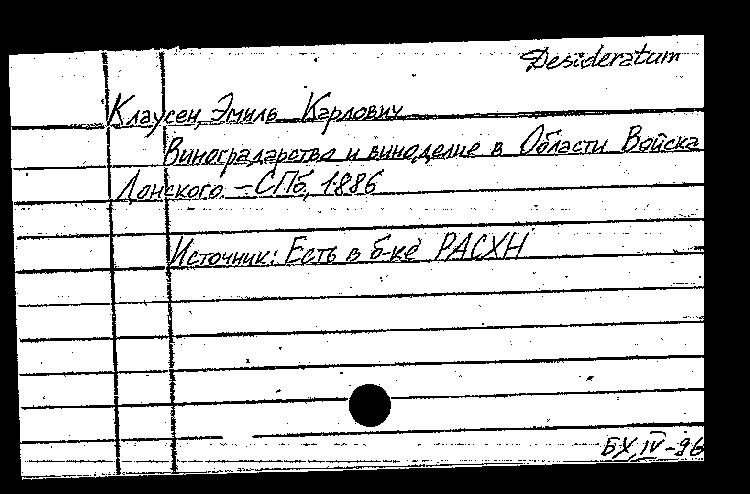 Desideratum
Клаусен, Эмиль Карлович
Виноградарство и виноделие в Области Войска
Донского. – СПб, 1886
Источник: Есть в б-ке РАСХН
БХ, IV-96